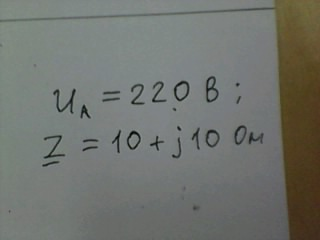 U_Л = 220 В ;
Z = 10 + j 10 Ом